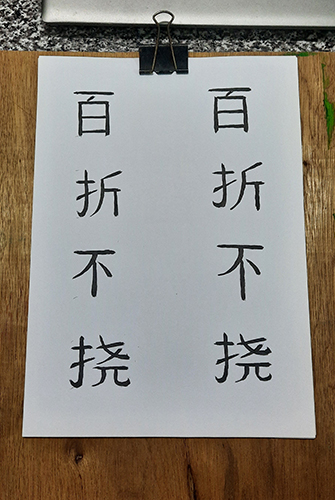 百折不挠
百折不挠